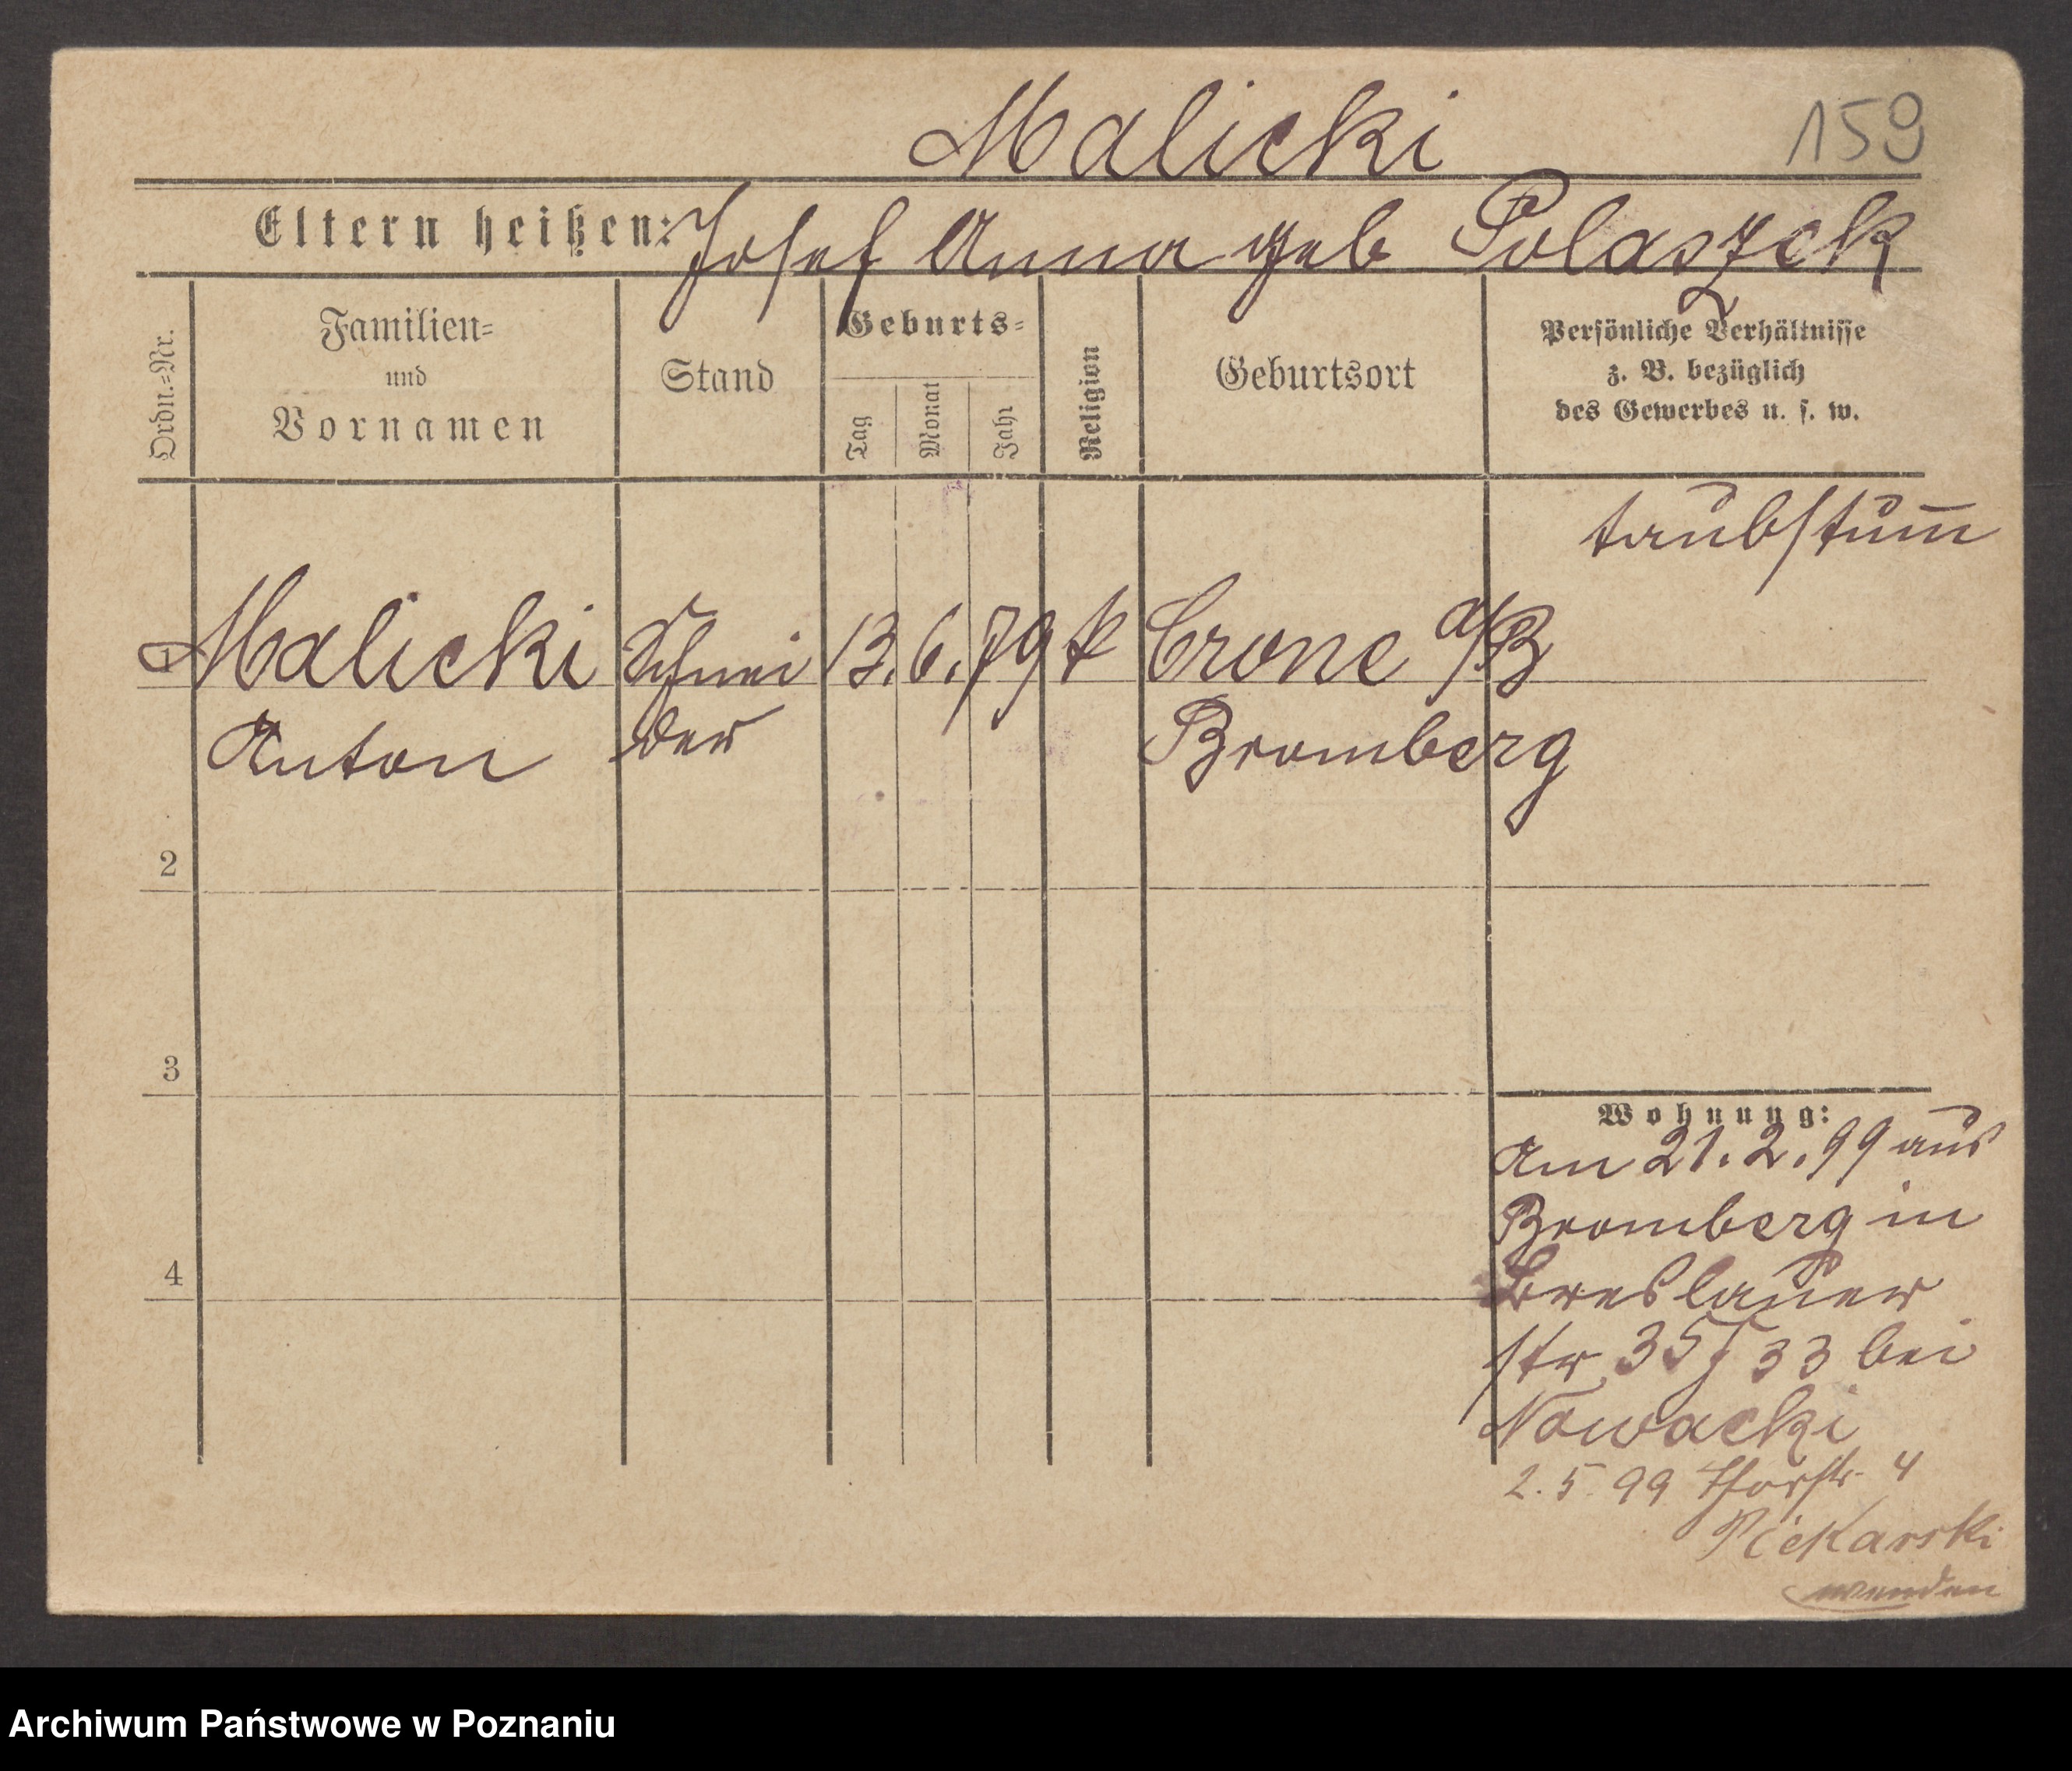 Malicki
159
Eltern heißen: Josef Anna geb Polaszek
Ordn.=Nr.
Familien=
und
Vornamen
Stand
Geburts=
Tag
Monat
Jahr
Religion
Geburtsort
Persönliche Verhältnisse
z. B. bezüglich
des Gewerbes u. s. w.
taubstum̅
1 Malicki Schnei 13. 6. 79 k Crone a/B
Anton der Bromberg
2
3
4
Wohnung:
Am 21. 2. 99 aus
Bromberg in
Breslauer
str 35/33 bei
Nowacki
2. 5 99 Thorstr 4
Piekarski
wenden
Archiwum Państwowe w Poznaniu